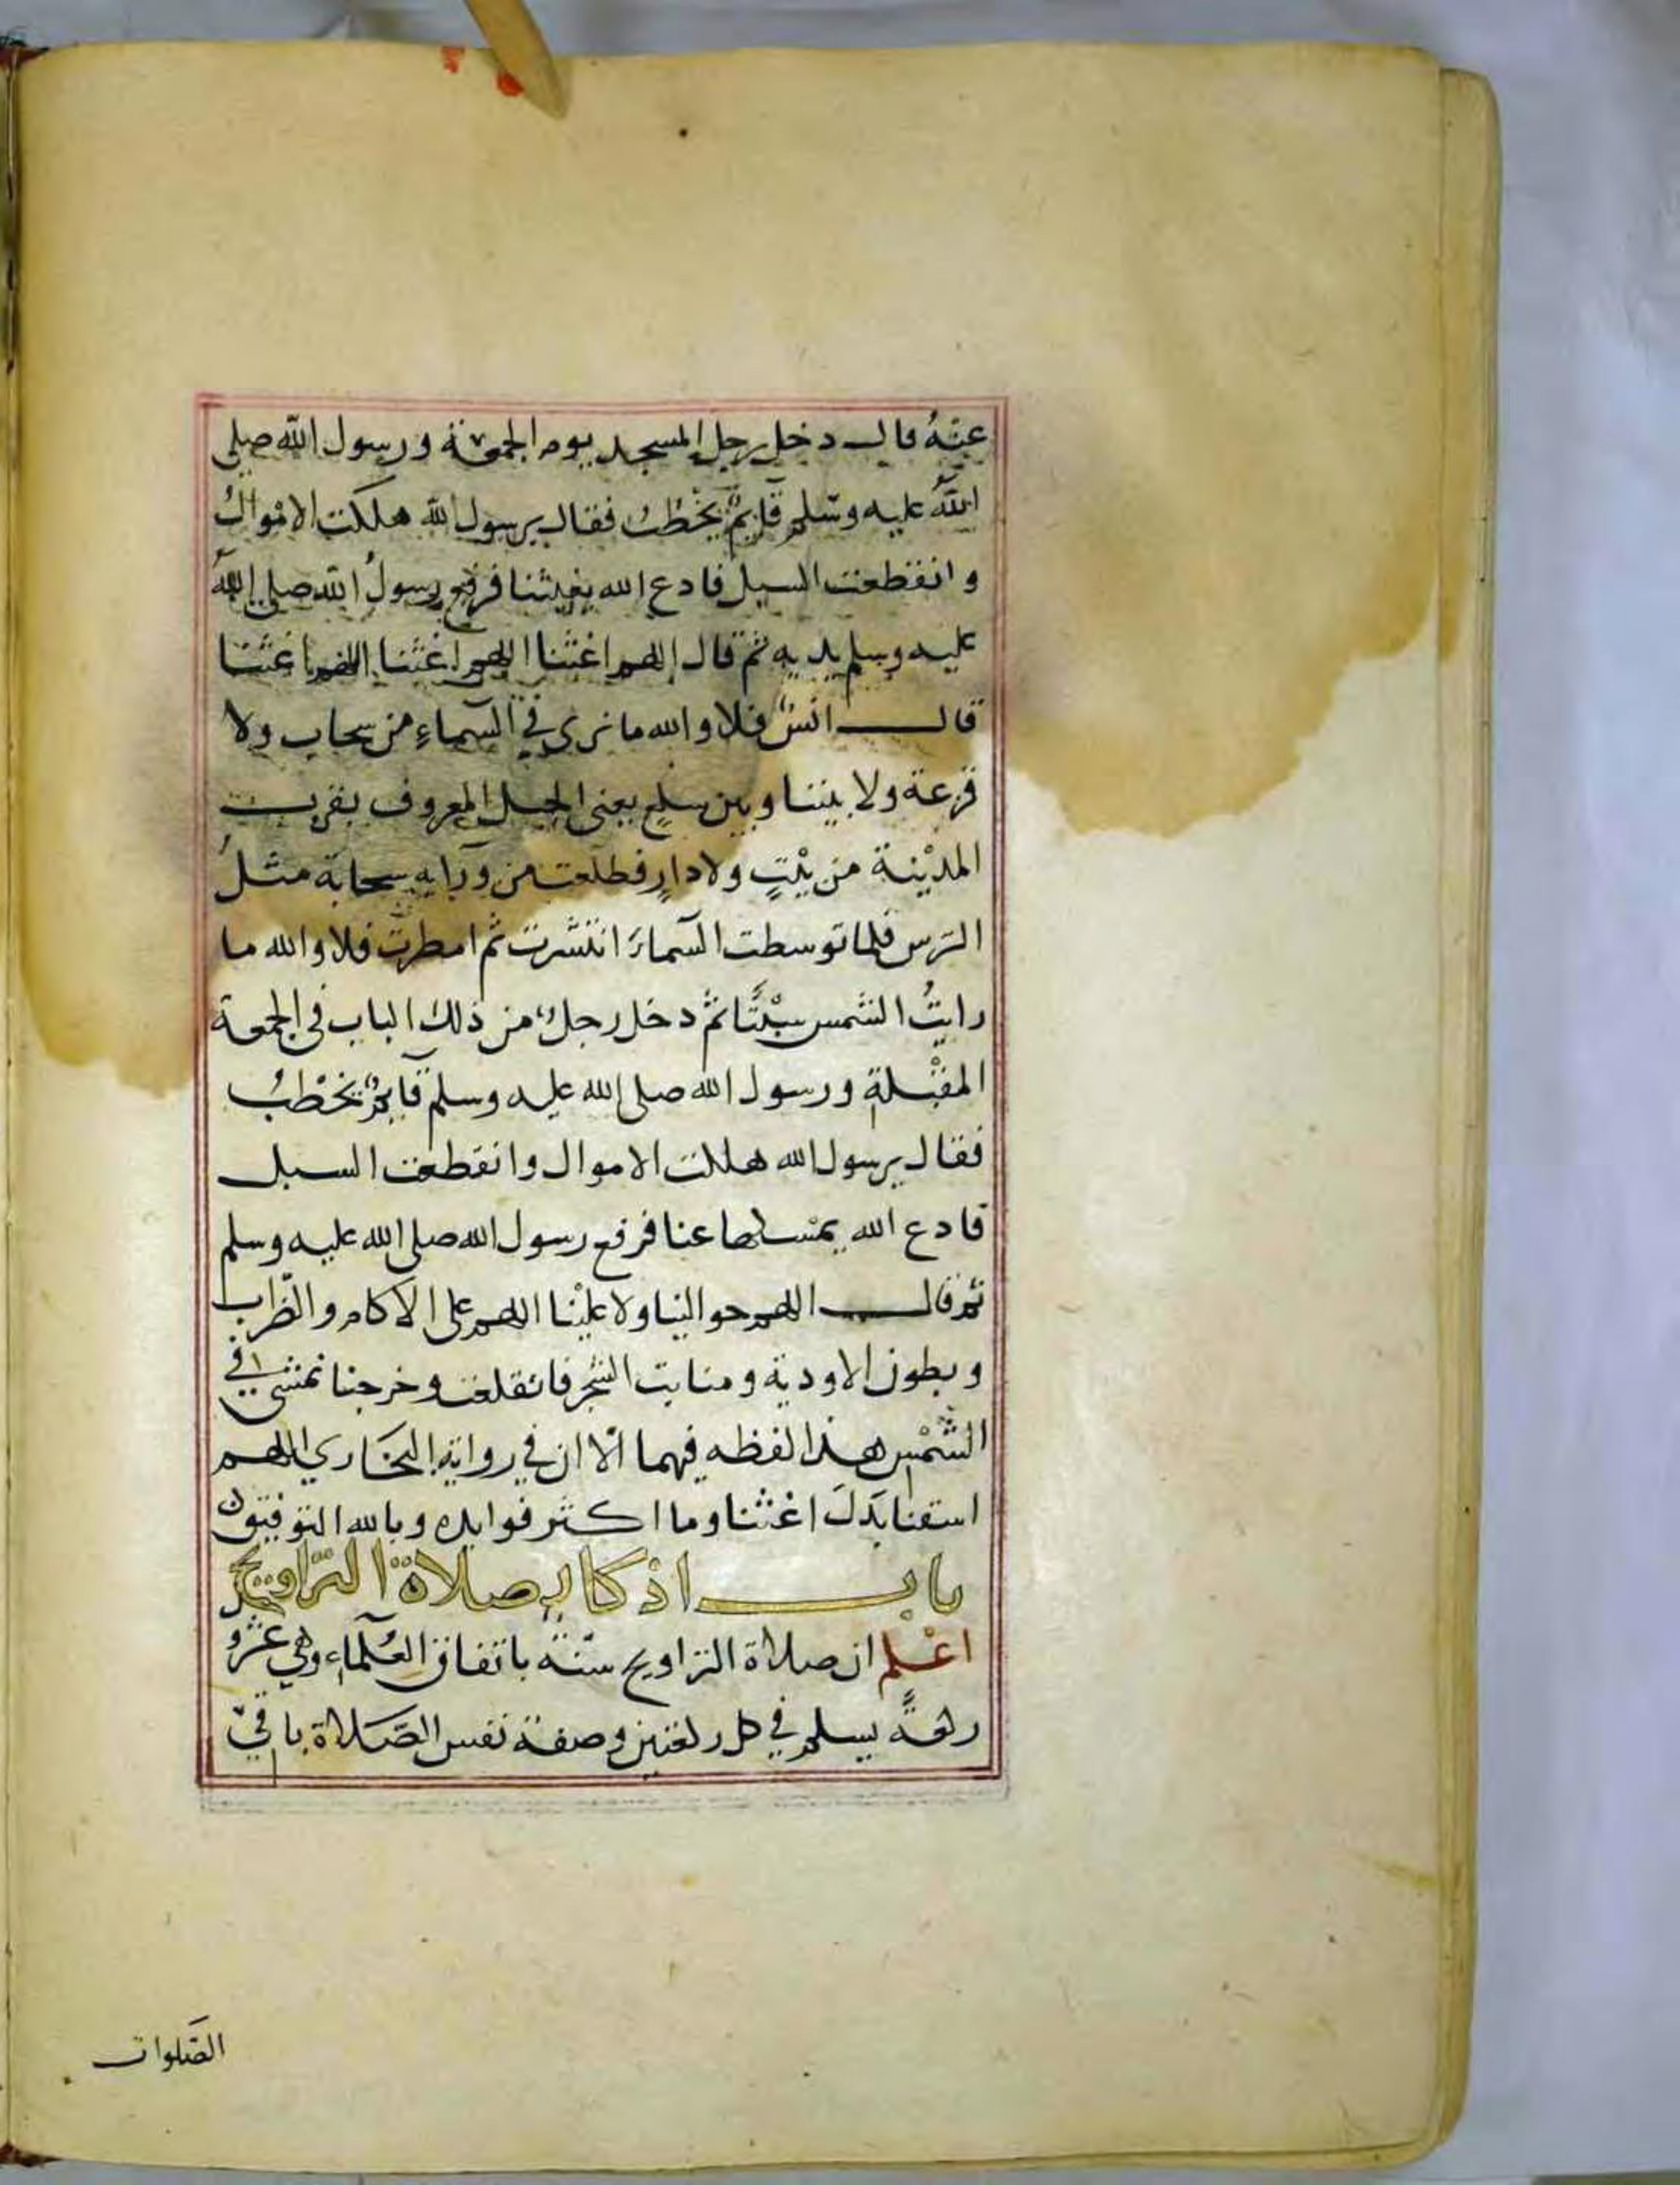 عنهُ قال دخل رجل المسجد يوم الجمعة ورسول الله صلى
اللهُ عليه وسلم قايمٌ يخْطُبُ فقال يرسول الله هلكت الامْوالُ
وانقطعت السبل فادع الله يغيثنا فرفع رسولُ الله صلى اللهُ
عليه وسلم يديه ثم قال اللهم اغثنا اللهم اغثنا اللهم اغثنا
قال انسٌ فلا والله ما نرى في السماءِ من سحاب ولا
قزعة ولا بيننا وبين سلع يعني الجبل المعروف بقرب
المديْنة من بيْتٍ ولا دارٍ فطلعت من ورايه سحابة مثلُ
الترس فلما توسطت السماءَ انتشرت ثم امطرت فلا والله ما
رايتُ الشمس سبْتًا ثم دخل رجلٌ من ذلك الباب في الجمعة
المقبْلة ورسول الله صلى الله عليه وسلم قايمٌ يخْطبُ
فقال يرسول الله هلكت الاموال وانقطعت السبل
فادع الله يمسكها عنا فرفع رسول الله صلى الله عليه وسلم
ثم قال اللهم حوالينا ولا عليْنا اللهم على الآكام والظراب
وبطون الاودية ومنابت الشجر فانقلعت وخرجنا نمشى في
الشمْس هذا لفظه فيهما الّا ان في رواية البخاري اللهم
اسقنا بَدَلَ اغثنا وما اكثر فوايده وبالله التوفيق
باب اذكار صلاة التراويح
اعْلم ان صلاة التراويح سنّة باتفاق العُلماء وهي عشرو
ركعةً يسلم في كل ركعتين وصفة نفس الصّلاة باقي
الصّلوات